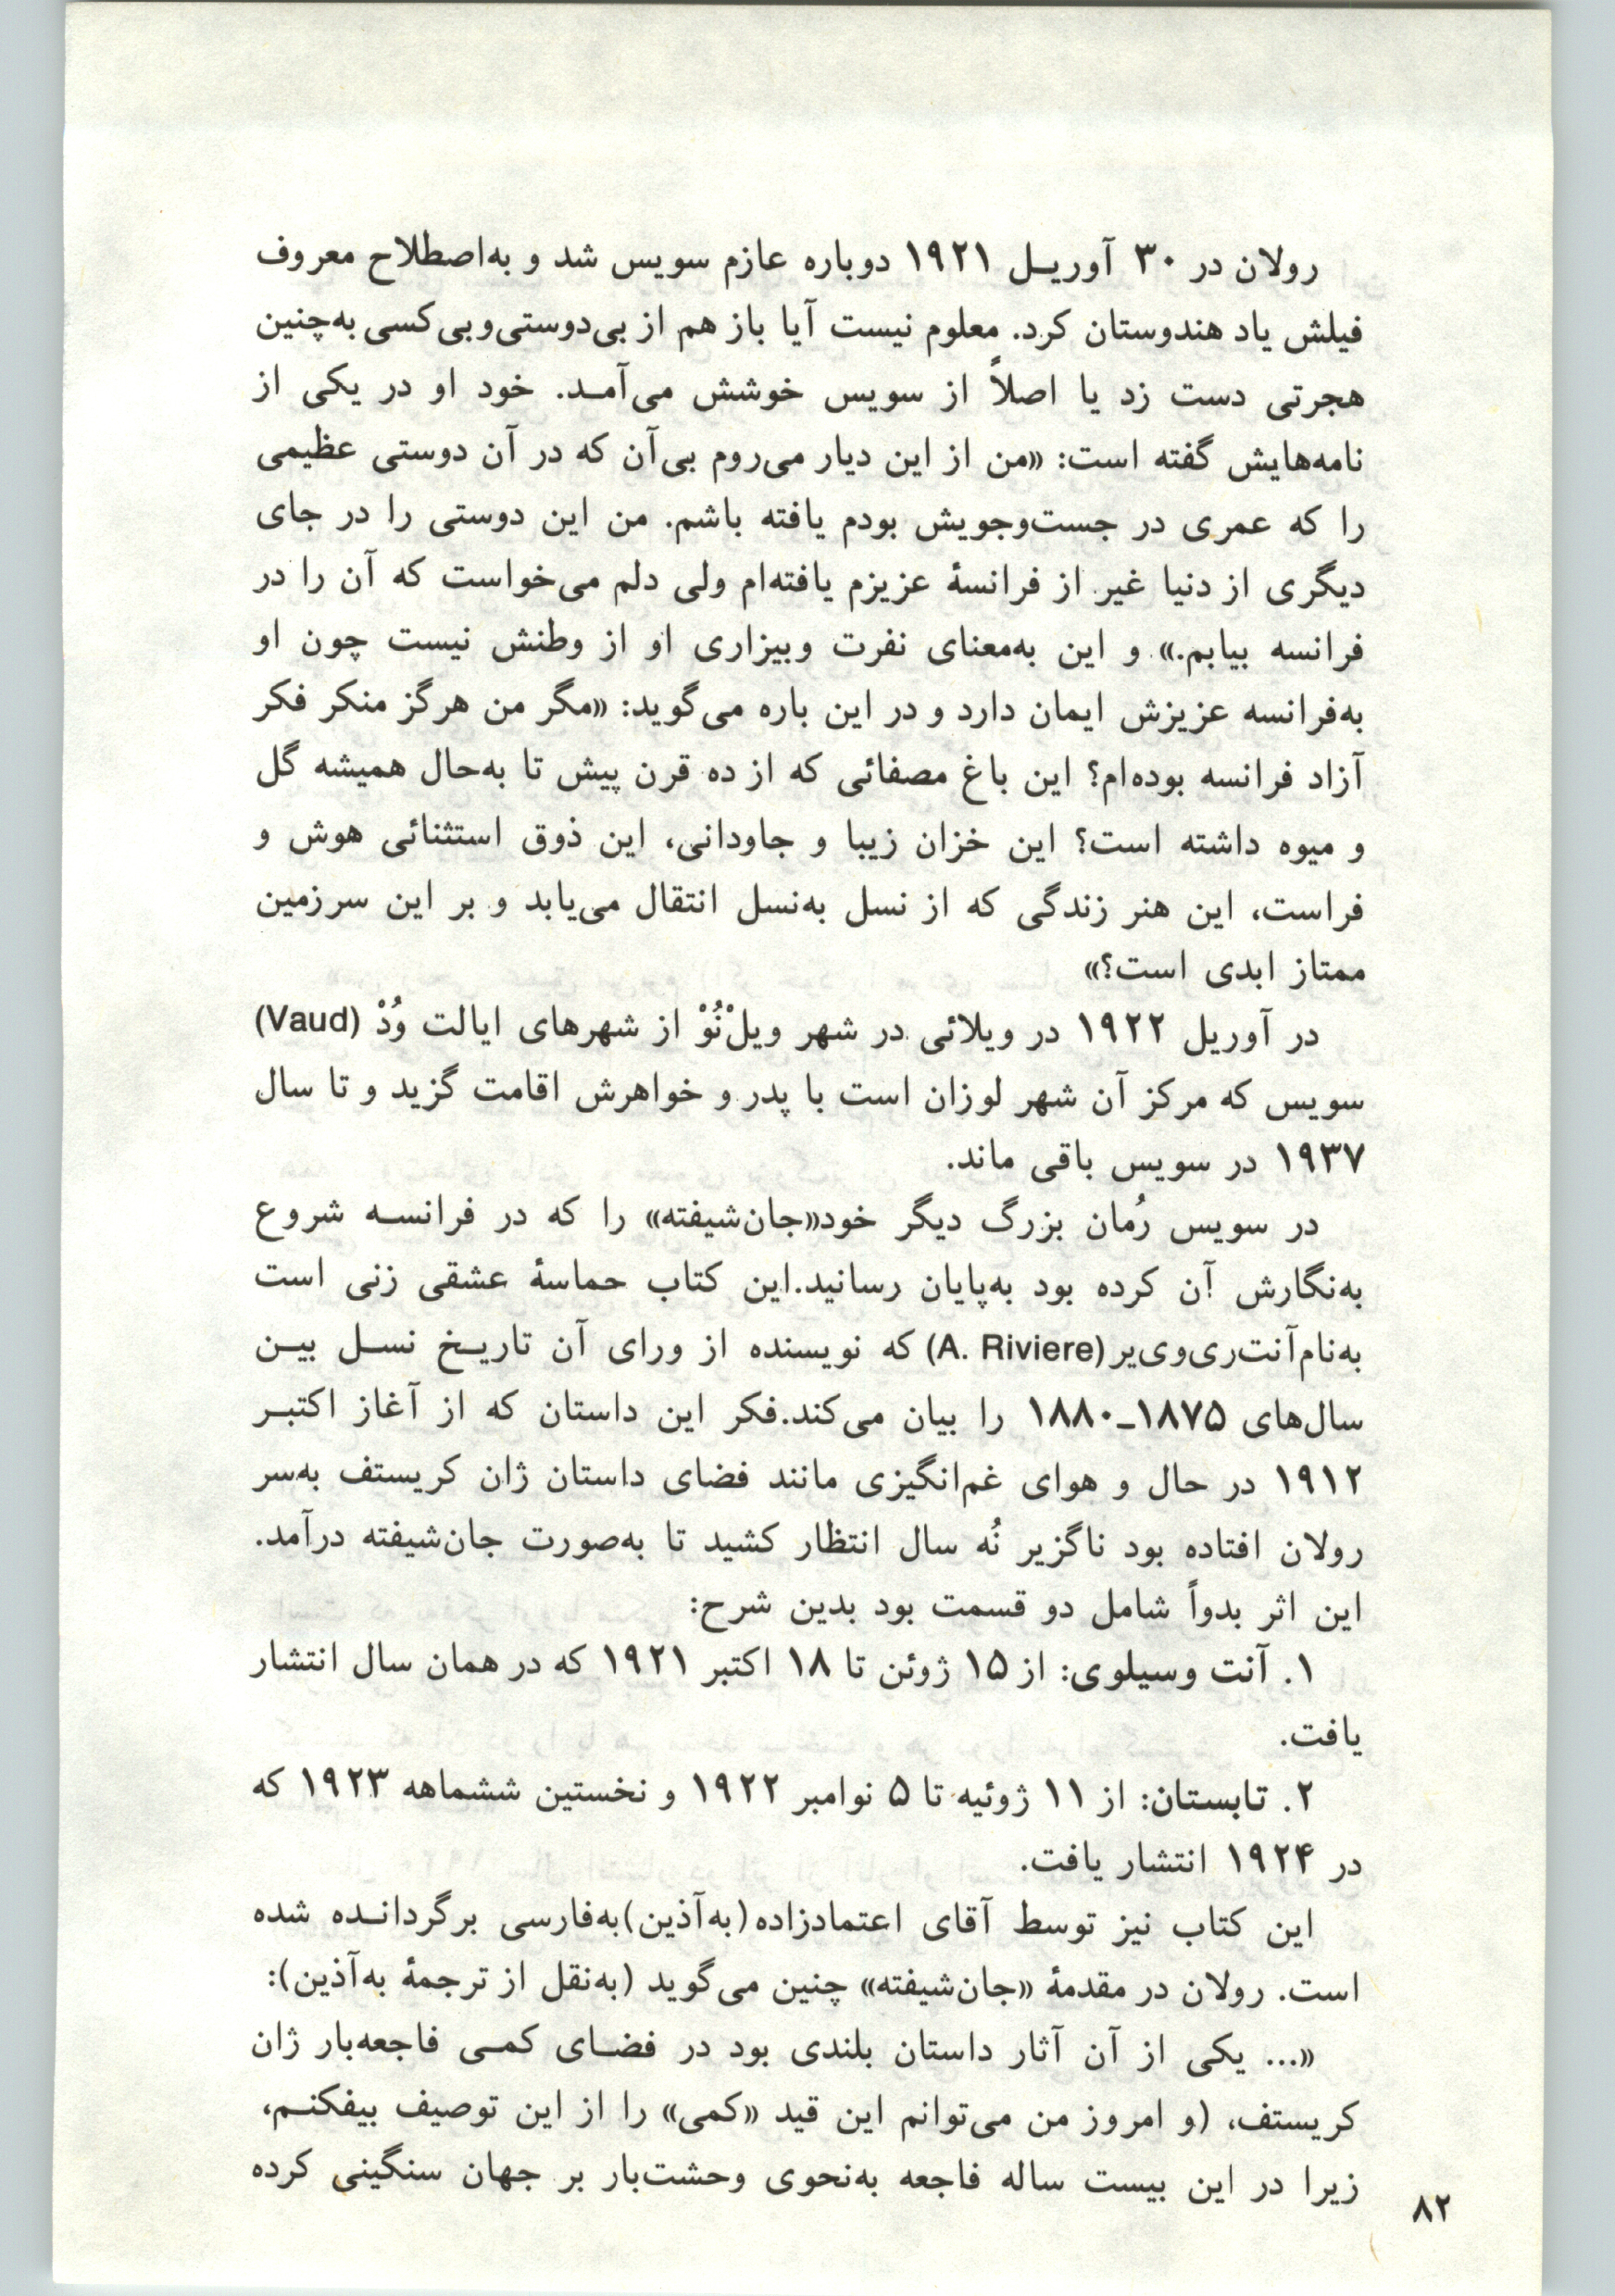 رولان در ۳۰ آوریل ۱۹۲۱ دوباره عازم سویس شد و به‌اصطلاح معروف
فیلش یاد هندوستان کرد. معلوم نیست آیا باز هم از بی‌دوستی‌وبی‌کسی به‌چنین
هجرتی دست زد یا اصلاً از سویس خوشش می‌آمد. خود او در یکی از
نامه‌هایش گفته است: «من از این دیار می‌روم بی‌آن که در آن دوستی عظیمی
را که عمری در جست‌وجویش بودم یافته باشم. من این دوستی را در جای
دیگری از دنیا غیر از فرانسهٔ عزیزم یافته‌ام ولی دلم می‌خواست که آن را در
فرانسه بیابم.» و این به‌معنای نفرت وبیزاری او از وطنش نیست چون او
به‌فرانسه عزیزش ایمان دارد و در این باره می‌گوید: «مگر من هرگز منکر فکر
آزاد فرانسه بوده‌ام؟ این باغ مصفائی که از ده قرن پیش تا به‌حال همیشه گل
و میوه داشته است؟ این خزان زیبا و جاودانی، این ذوق استثنائی هوش و
فراست، این هنر زندگی که از نسل به‌نسل انتقال می‌یابد و بر این سرزمین
ممتاز ابدی است؟»
در آوریل ۱۹۲۲ در ویلائی در شهر ویلْنُوْ از شهرهای ایالت وُدْ (Vaud)
سویس که مرکز آن شهر لوزان است با پدر و خواهرش اقامت گزید و تا سال
۱۹۳۷ در سویس باقی ماند.
در سویس رُمان بزرگ دیگر خود«جان‌شیفته» را که در فرانسه شروع
به‌نگارش آن کرده بود به‌پایان رسانید.این کتاب حماسهٔ عشقی زنی است
به‌نام‌آنت‌ری‌وی‌یر(A. Riviere) که نویسنده از ورای آن تاریخ نسل بین
سال‌های ۱۸۷۵ـ۱۸۸۰ را بیان می‌کند.فکر این داستان که از آغاز اکتبر
۱۹۱۲ در حال و هوای غم‌انگیزی مانند فضای داستان ژان کریستف به‌سر
رولان افتاده بود ناگزیر نُه سال انتظار کشید تا به‌صورت جان‌شیفته درآمد.
این اثر بدواً شامل دو قسمت بود بدین شرح:
۱. آنت وسیلوی: از ۱۵ ژوئن تا ۱۸ اکتبر ۱۹۲۱ که در همان سال انتشار
یافت.
۲. تابستان: از ۱۱ ژوئیه تا ۵ نوامبر ۱۹۲۲ و نخستین ششماهه ۱۹۲۳ که
در ۱۹۲۴ انتشار یافت.
این کتاب نیز توسط آقای اعتمادزاده(به‌آذین)به‌فارسی برگردانده شده
است. رولان در مقدمهٔ «جان‌شیفته» چنین می‌گوید (به‌نقل از ترجمهٔ به‌آذین):
«... یکی از آن آثار داستان بلندی بود در فضای کمی فاجعه‌بار ژان
کریستف، (و امروز من می‌توانم این قید «کمی» را از این توصیف بیفکنم،
زیرا در این بیست ساله فاجعه به‌نحوی وحشت‌بار بر جهان سنگینی کرده
۸۲